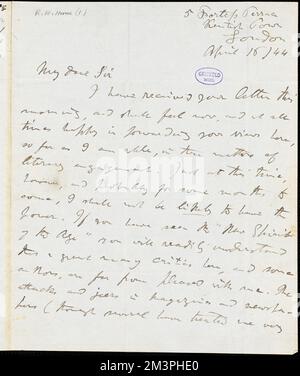 R. H. Horne (1)
5 Fortess Terrace
Kentish Town
London
April 16/44
GRISWOLD
MSS.
My dear Sir
I have received your letter this
morning, and shall feel now, and at all
times happy in forwarding your views here,
so far as I am able, in the matters of
literary engagement. Just at this time,
however, and probably for some months to
come, I shall not be likely to have the
power. If you have seen the "New Spirit
of the Age" you will readily understand
that a great many critics here, and some
authors, are far from pleased with me. The
attacks, and jeers in magazines and newspa-
pers (though several have treated me very
alamy
Image ID: 2M3PHE0
www.alamy.com